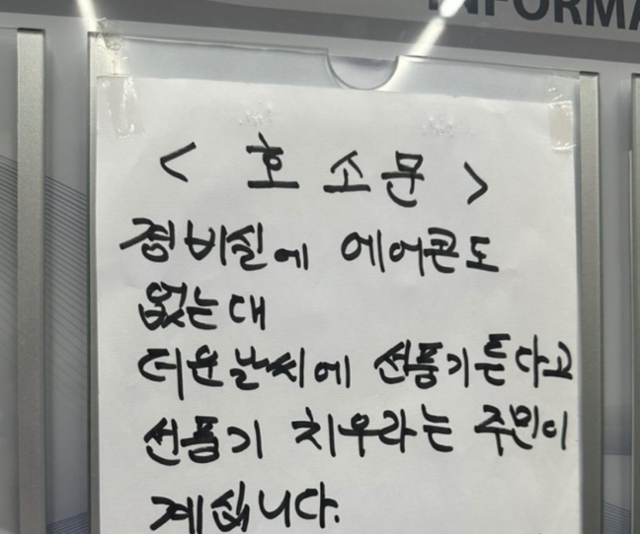 INFORMA
< 호소문 >
경비실에 에어콘도
없는대
더운날씨에 선풍기튼다고
선풍기 치우라는 주민이
계십니다.